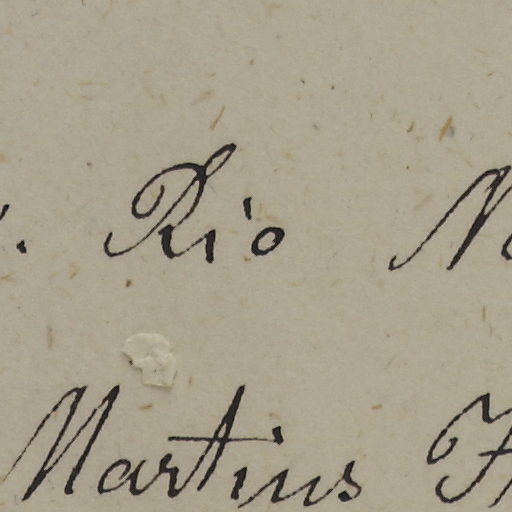 Rio
Martius